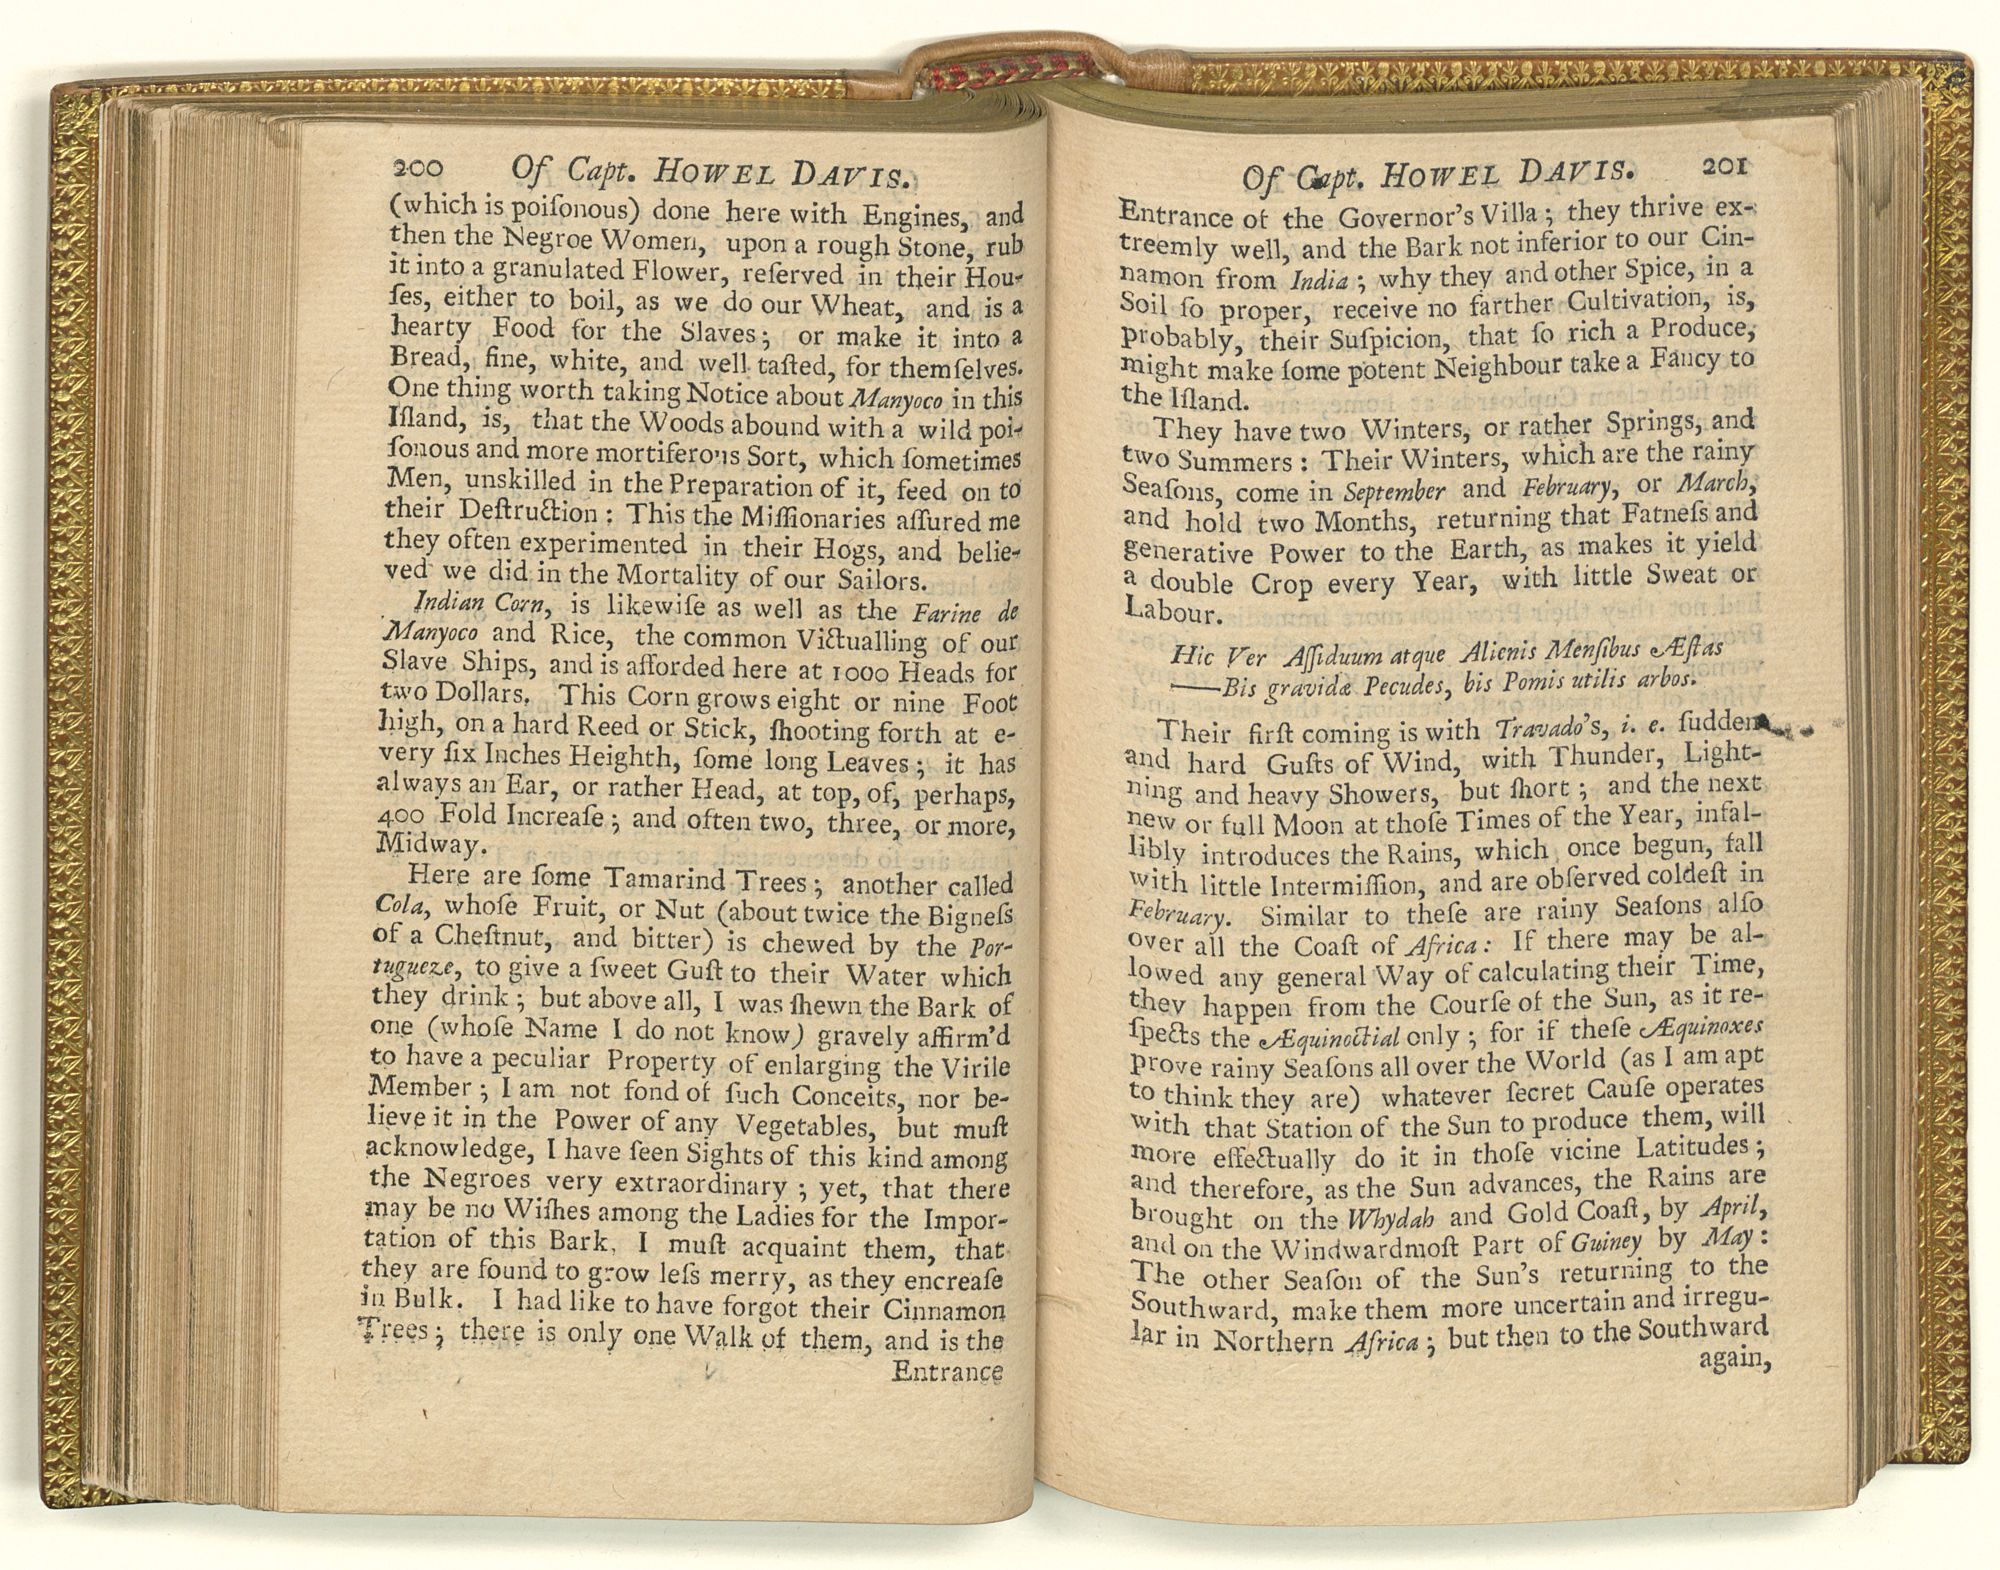 200 Of Capt. HOWEL DAVIS.
(which is poiſonous) done here with Engines, and
then the Negroe Women, upon a rough Stone, rub
it into a granulated Flower, reſerved in their Hou-
ſes, either to boil, as we do our Wheat, and is a
hearty Food for the Slaves; or make it into a
Bread, fine, white, and well taſted, for themſelves.
One thing worth taking Notice about Manyoco in this
Iſland, is, that the Woods abound with a wild poi-
ſonous and more mortiferous Sort, which ſometimes
Men, unskilled in the Preparation of it, feed on to
their Deſtruction: This the Miſſionaries aſſured me
they often experimented in their Hogs, and belie-
ved we did in the Mortality of our Sailors.
Indian Corn, is likewiſe as well as the Farine de
Manyoco and Rice, the common Victualling of our
Slave Ships, and is afforded here at 1000 Heads for
two Dollars. This Corn grows eight or nine Foot
high, on a hard Reed or Stick, ſhooting forth at e-
very ſix Inches Heighth, ſome long Leaves; it has
always an Ear, or rather Head, at top, of, perhaps,
400 Fold Increaſe; and often two, three, or more,
Midway.
Here are ſome Tamarind Trees; another called
Cola, whoſe Fruit, or Nut (about twice the Bigneſs
of a Cheſtnut, and bitter) is chewed by the Por-
tugueze, to give a ſweet Guſt to their Water which
they drink; but above all, I was ſhewn the Bark of
one (whoſe Name I do not know) gravely affirm'd
to have a peculiar Property of enlarging the Virile
Member; I am not fond of ſuch Conceits, nor be-
lieve it in the Power of any Vegetables, but muſt
acknowledge, I have ſeen Sights of this kind among
the Negroes very extraordinary; yet, that there
may be no Wiſhes among the Ladies for the Impor-
tation of this Bark, I muſt acquaint them, that
they are found to grow leſs merry, as they encreaſe
in Bulk. I had like to have forgot their Cinnamon
Trees; there is only one Walk of them, and is the
Entrance
Of Capt. HOWEL DAVIS. 201
Entrance of the Governor's Villa; they thrive ex-
treemly well, and the Bark not inferior to our Cin-
namon from India; why they and other Spice, in a
Soil ſo proper, receive no farther Cultivation, is,
probably, their Suſpicion, that ſo rich a Produce,
might make ſome potent Neighbour take a Fancy to
the Iſland.
They have two Winters, or rather Springs, and
two Summers: Their Winters, which are the rainy
Seaſons, come in September and February, or March,
and hold two Months, returning that Fatneſs and
generative Power to the Earth, as makes it yield
a double Crop every Year, with little Sweat or
Labour.
Hic Ver Aſſiduum atque Alienis Menſibus Æſtas
——Bis gravidæ Pecudes, bis Pomis utilis arbos.
Their firſt coming is with Travado's, i. e. ſudden
and hard Guſts of Wind, with Thunder, Light-
ning and heavy Showers, but ſhort; and the next
new or full Moon at thoſe Times of the Year, infal-
libly introduces the Rains, which once begun, fall
with little Intermiſſion, and are obſerved coldeſt in
February. Similar to theſe are rainy Seaſons alſo
over all the Coaſt of Africa: If there may be al-
lowed any general Way of calculating their Time,
they happen from the Courſe of the Sun, as it re-
ſpects the Æquinoctial only; for if theſe Æquinoxes
prove rainy Seaſons all over the World (as I am apt
to think they are) whatever ſecret Cauſe operates
with that Station of the Sun to produce them, will
more effectually do it in thoſe vicine Latitudes;
and therefore, as the Sun advances, the Rains are
brought on the Whydah and Gold Coaſt, by April,
and on the Windwardmoſt Part of Guiney by May:
The other Seaſon of the Sun's returning to the
Southward, make them more uncertain and irregu-
lar in Northern Africa; but then to the Southward
again,